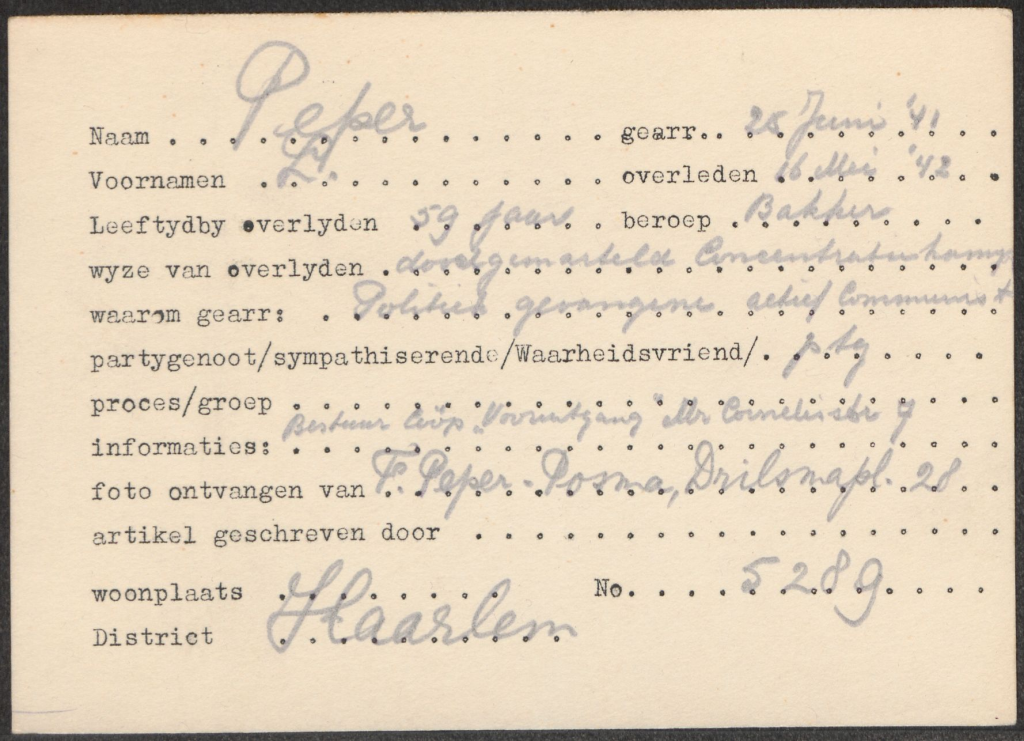 Naam . . . Peper . . . gearr. . . 25 Juni '41
Voornamen . . . L. . . . overleden . . . 16 Mei '42
Leeftydby overlyden 59 jaar . . . beroep . . . Bakker
wyze van overlyden . . . doodgemarteld Concentratiekamp
waarom gearr: . . . Politiek gevangene actief Communist
partygenoot/sympathiserende/Waarheidsvriend/. . . ptg
proces/groep . . .
informaties: Bestuur Coöp. "Vooruitgang" Mr Cornelisstr 9
foto ontvangen van F. Peper-Posma, Drilsmapl. 28
artikel geschreven door . . .
woonplaats . . . Haarlem No. . . . 5289
District . . .